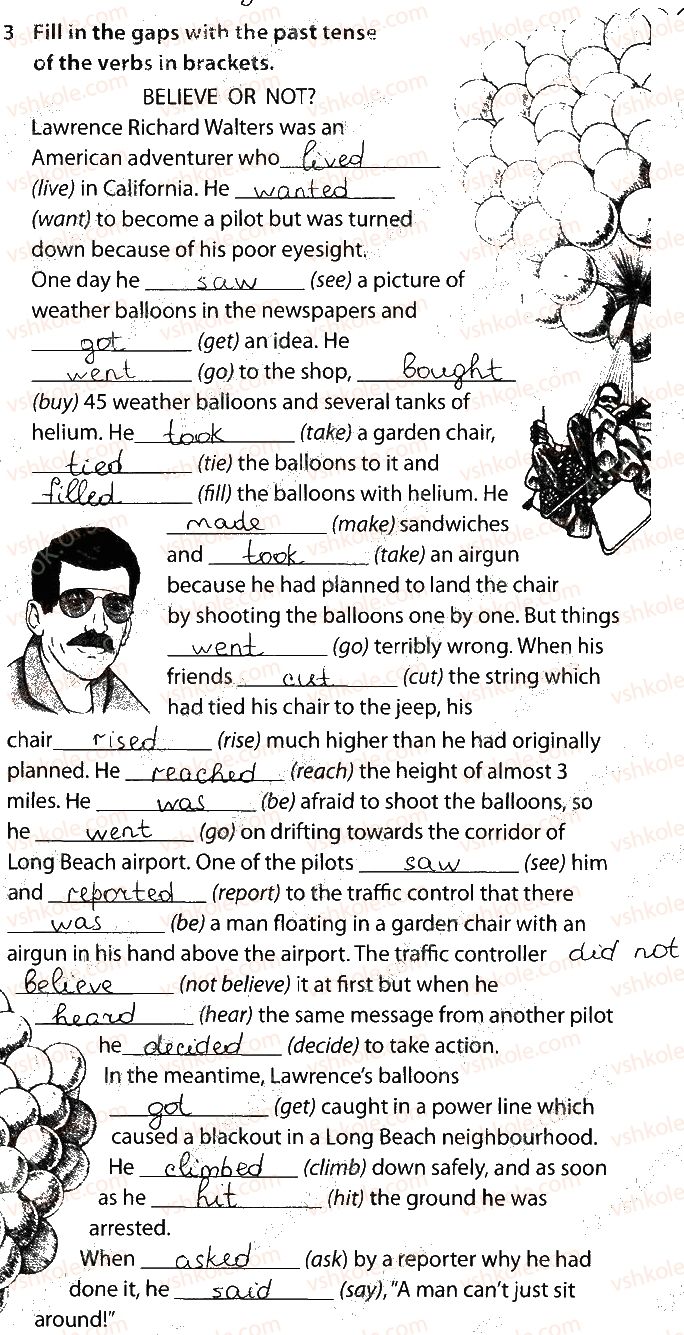 3 Fill in the gaps with the past tense
of the verbs in brackets.
BELIEVE OR NOT?
Lawrence Richard Walters was an
American adventurer who lived
(live) in California. He wanted
(want) to become a pilot but was turned
down because of his poor eyesight.
One day he saw (see) a picture of
weather balloons in the newspapers and
got (get) an idea. He
went (go) to the shop, bought
(buy) 45 weather balloons and several tanks of
helium. He took (take) a garden chair,
tied (tie) the balloons to it and
filled (fill) the balloons with helium. He
made (make) sandwiches
and took (take) an airgun
because he had planned to land the chair
by shooting the balloons one by one. But things
went (go) terribly wrong. When his
friends cut (cut) the string which
had tied his chair to the jeep, his
chair rised (rise) much higher than he had originally
planned. He reached (reach) the height of almost 3
miles. He was (be) afraid to shoot the balloons, so
he went (go) on drifting towards the corridor of
Long Beach airport. One of the pilots saw (see) him
and reported (report) to the traffic control that there
was (be) a man floating in a garden chair with an
airgun in his hand above the airport. The traffic controller did not
believe (not believe) it at first but when he
heard (hear) the same message from another pilot
he decided (decide) to take action.
In the meantime, Lawrence's balloons
got (get) caught in a power line which
caused a blackout in a Long Beach neighbourhood.
He climbed (climb) down safely, and as soon
as he hit (hit) the ground he was
arrested.
When asked (ask) by a reporter why he had
done it, he said (say), "A man can't just sit
around!"
vshkole.com